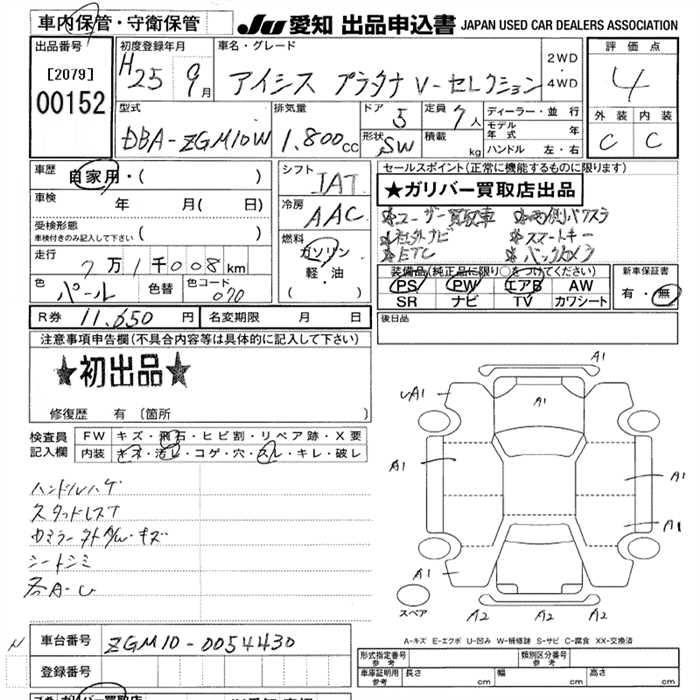 車内保管・守衛保管
JU 愛知 出品申込書 JAPAN USED CAR DEALERS ASSOCIATION
出品番号
[2079]
00152
初度登録年月
H25 9月
車名・グレード
アイシス プラタナ V-セレクション
2WD
・
4WD
評価点
4
外装 内装
C C
型式
DBA-ZGM10W
排気量
1.800cc
ドア 5
定員 7人
形状 SW
積載 kg
ディーラー・並行
モデル年式 年
ハンドル 左・右
車歴
自家用・( )
車検
年 月( 日)
受検形態
車検付きのみ記入して下さい ( )
走行
7万1千008km
色 パール 色替 色コード 070
シフト
IAT
冷房
AAC
燃料
ガソリン
軽・油
( )
セールスポイント(正常に機能するものに限ります)
★ガリバー買取店出品
※ユーザー買取車 ※両側パワスラ
※社外ナビ ※スマートキー
※ETC ※バックカメラ
装備品(純正品に限り○をつけてください)
PS PW エアB AW
SR ナビ TV カワシート
新車保証書
有・無
R券 11,650円 名変期限 月 日
後日品
注意事項申告欄(不具合内容等は具体的に記入して下さい)
★初出品★
修復歴 有 〔箇所 〕
検査員
記入欄
FW キズ・飛石・ヒビ割・リペア跡・X要
内装 キズ・汚レ・コゲ・穴・スレ・キレ・破レ
ハンドルハゲ
スタッドレス7
シートシミ
各A-U
A1
UA1
A1
A1
A1
A1
A2
A2
スペア
A-キズ E-エクボ U-凹み W-補修跡 S-サビ C-腐食 XX-交換済
車台番号 ZGM10-0054430
登録番号
形式指定番号
参考
類別区分番号
参考
車庫証明用
参考
長さ cm 幅 cm 高さ cm
ガリバー買取店